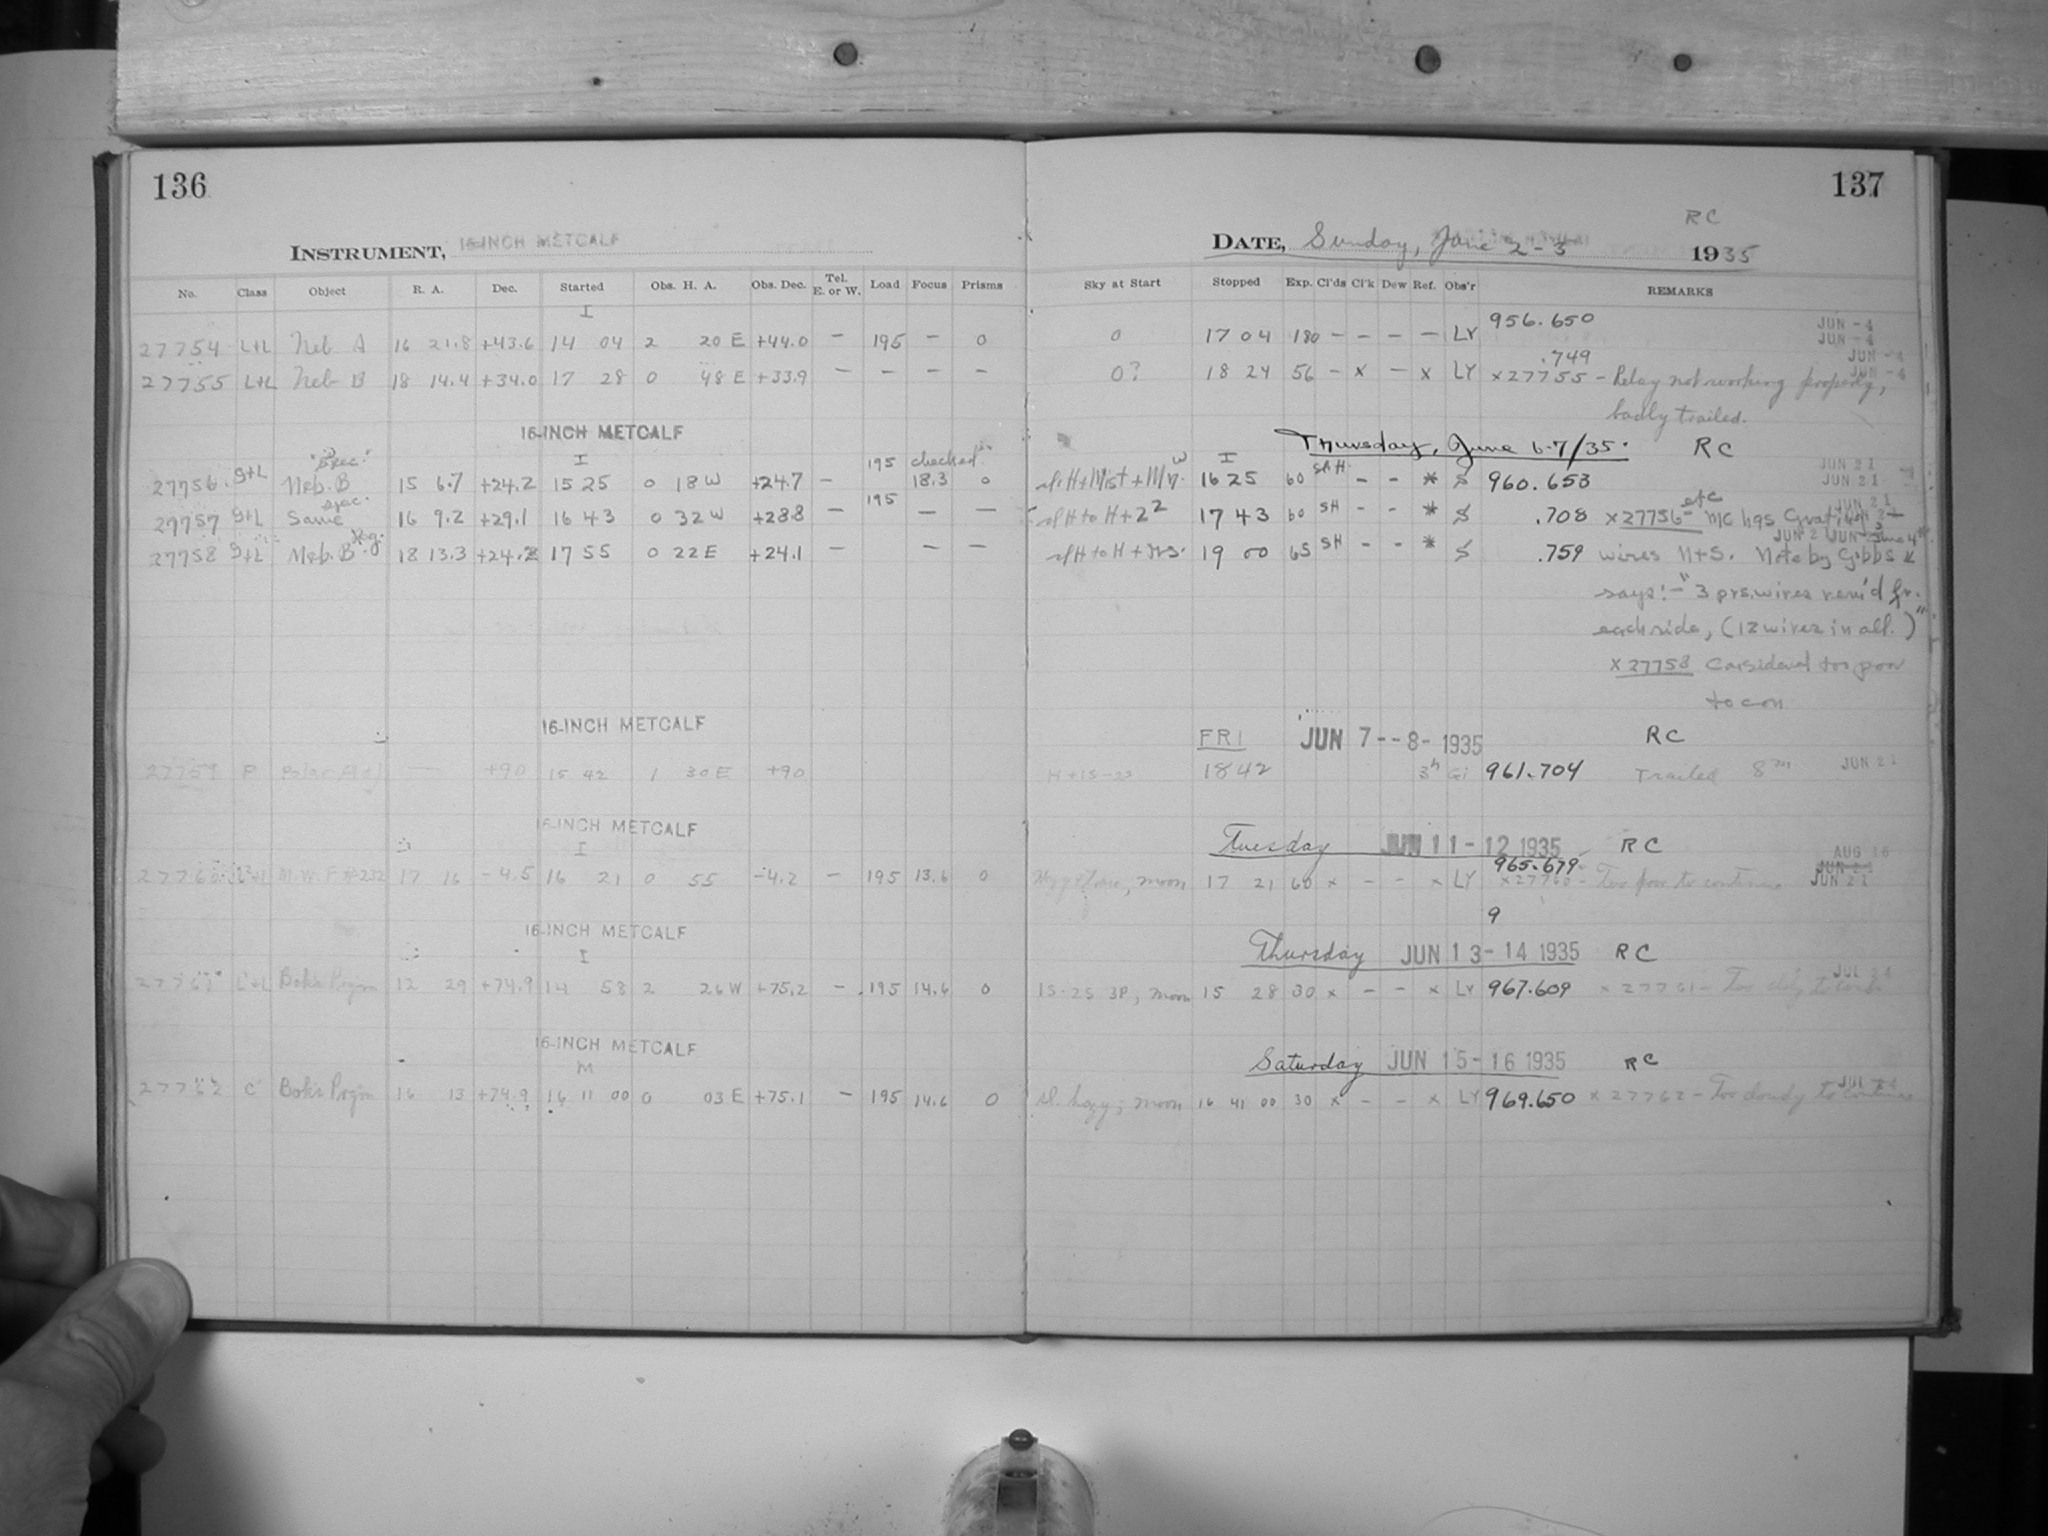 136
INSTRUMENT, 16-INCH METCALF
No. Class Object R. A. Dec. Started Obs. H. A. Obs. Dec. Tel. E. or W. Load Focus Prisms
I
27754 L+L Neb A 16 21.8 +43.6 14 04 2 20 E +44.0 — 195 — 0
27755 L+L Neb B 18 14.4 +34.0 17 28 0 48 E +33.9 — — — —
16-INCH METCALF
"Spec." I 195 checked
27756 S+L Neb. B 15 6.7 +24.2 15 25 0 18 W +24.7 — 18.3 0
spec. 195
27757 S+L Same 16 9.2 +29.1 16 43 0 32 W +28.8 — — —
27758 S+L Neb. B 18 13.3 +24.2 17 55 0 22 E +24.1 — — —
16-INCH METCALF
27759 P Polar Adj — +90 15 42 1 30 E +90
16-INCH METCALF
I
27760 M.W.F #232 17 16 -4.5 16 21 0 55 -4.2 — 195 13.6 0
16-INCH METCALF
I
27761 L+L Bok's Prgm 12 29 +74.9 14 58 2 26 W +75.2 — 195 14.6 0
16-INCH METCALF
M
27762 C Bok's Prgm 16 13 +74.9 16 11 00 0 03 E +75.1 — 195 14.6 0
137
RC
DATE, Sunday, June 2-3 1935
Sky at Start Stopped Exp. Cl'ds Cl'k Dew Ref. Obs'r REMARKS
0 17 04 180 — — — — LY 956.650 JUN -4
JUN -4
.749 JUN -4
0? 18 24 56 — x — x LY x27755 - Relay not working properly, JUN -4
badly trailed.
Thursday, June 6-7/35. RC
I JUN 21
16 25 60 — — * S 960.653 JUN 21
etc JUN 21
sl H to H+2² 17 43 60 SH — — * S .708 x27756- MC has
19 00 65 SH — — * S .759 wires N+S. Note by Gibbs
says:- "3 prs. wires rem'd fr.
each side, (12 wires in all.)"
x27758 Considered too poor
to con
FRI JUN 7--8- 1935 RC
H+15-25 18 42 3h Gi 961.704 Trailed 8m JUN 21
Tuesday JUN 11-12 1935 RC
965.679 AUG 16
JUN 21
moon 17 21 60 x — — x LY x27760 - Too poor to continue JUN 21
9
Thursday JUN 13-14 1935 RC
JUL 24
15-25 3P, moon 15 28 30 x — — x LY 967.609 x 27761 - Too cldy to cont.
Saturday JUN 15-16 1935 RC
JUL 24
sl. hazy; moon 16 41 00 30 x — — x LY 969.650 x 27762 - Too cloudy to continue